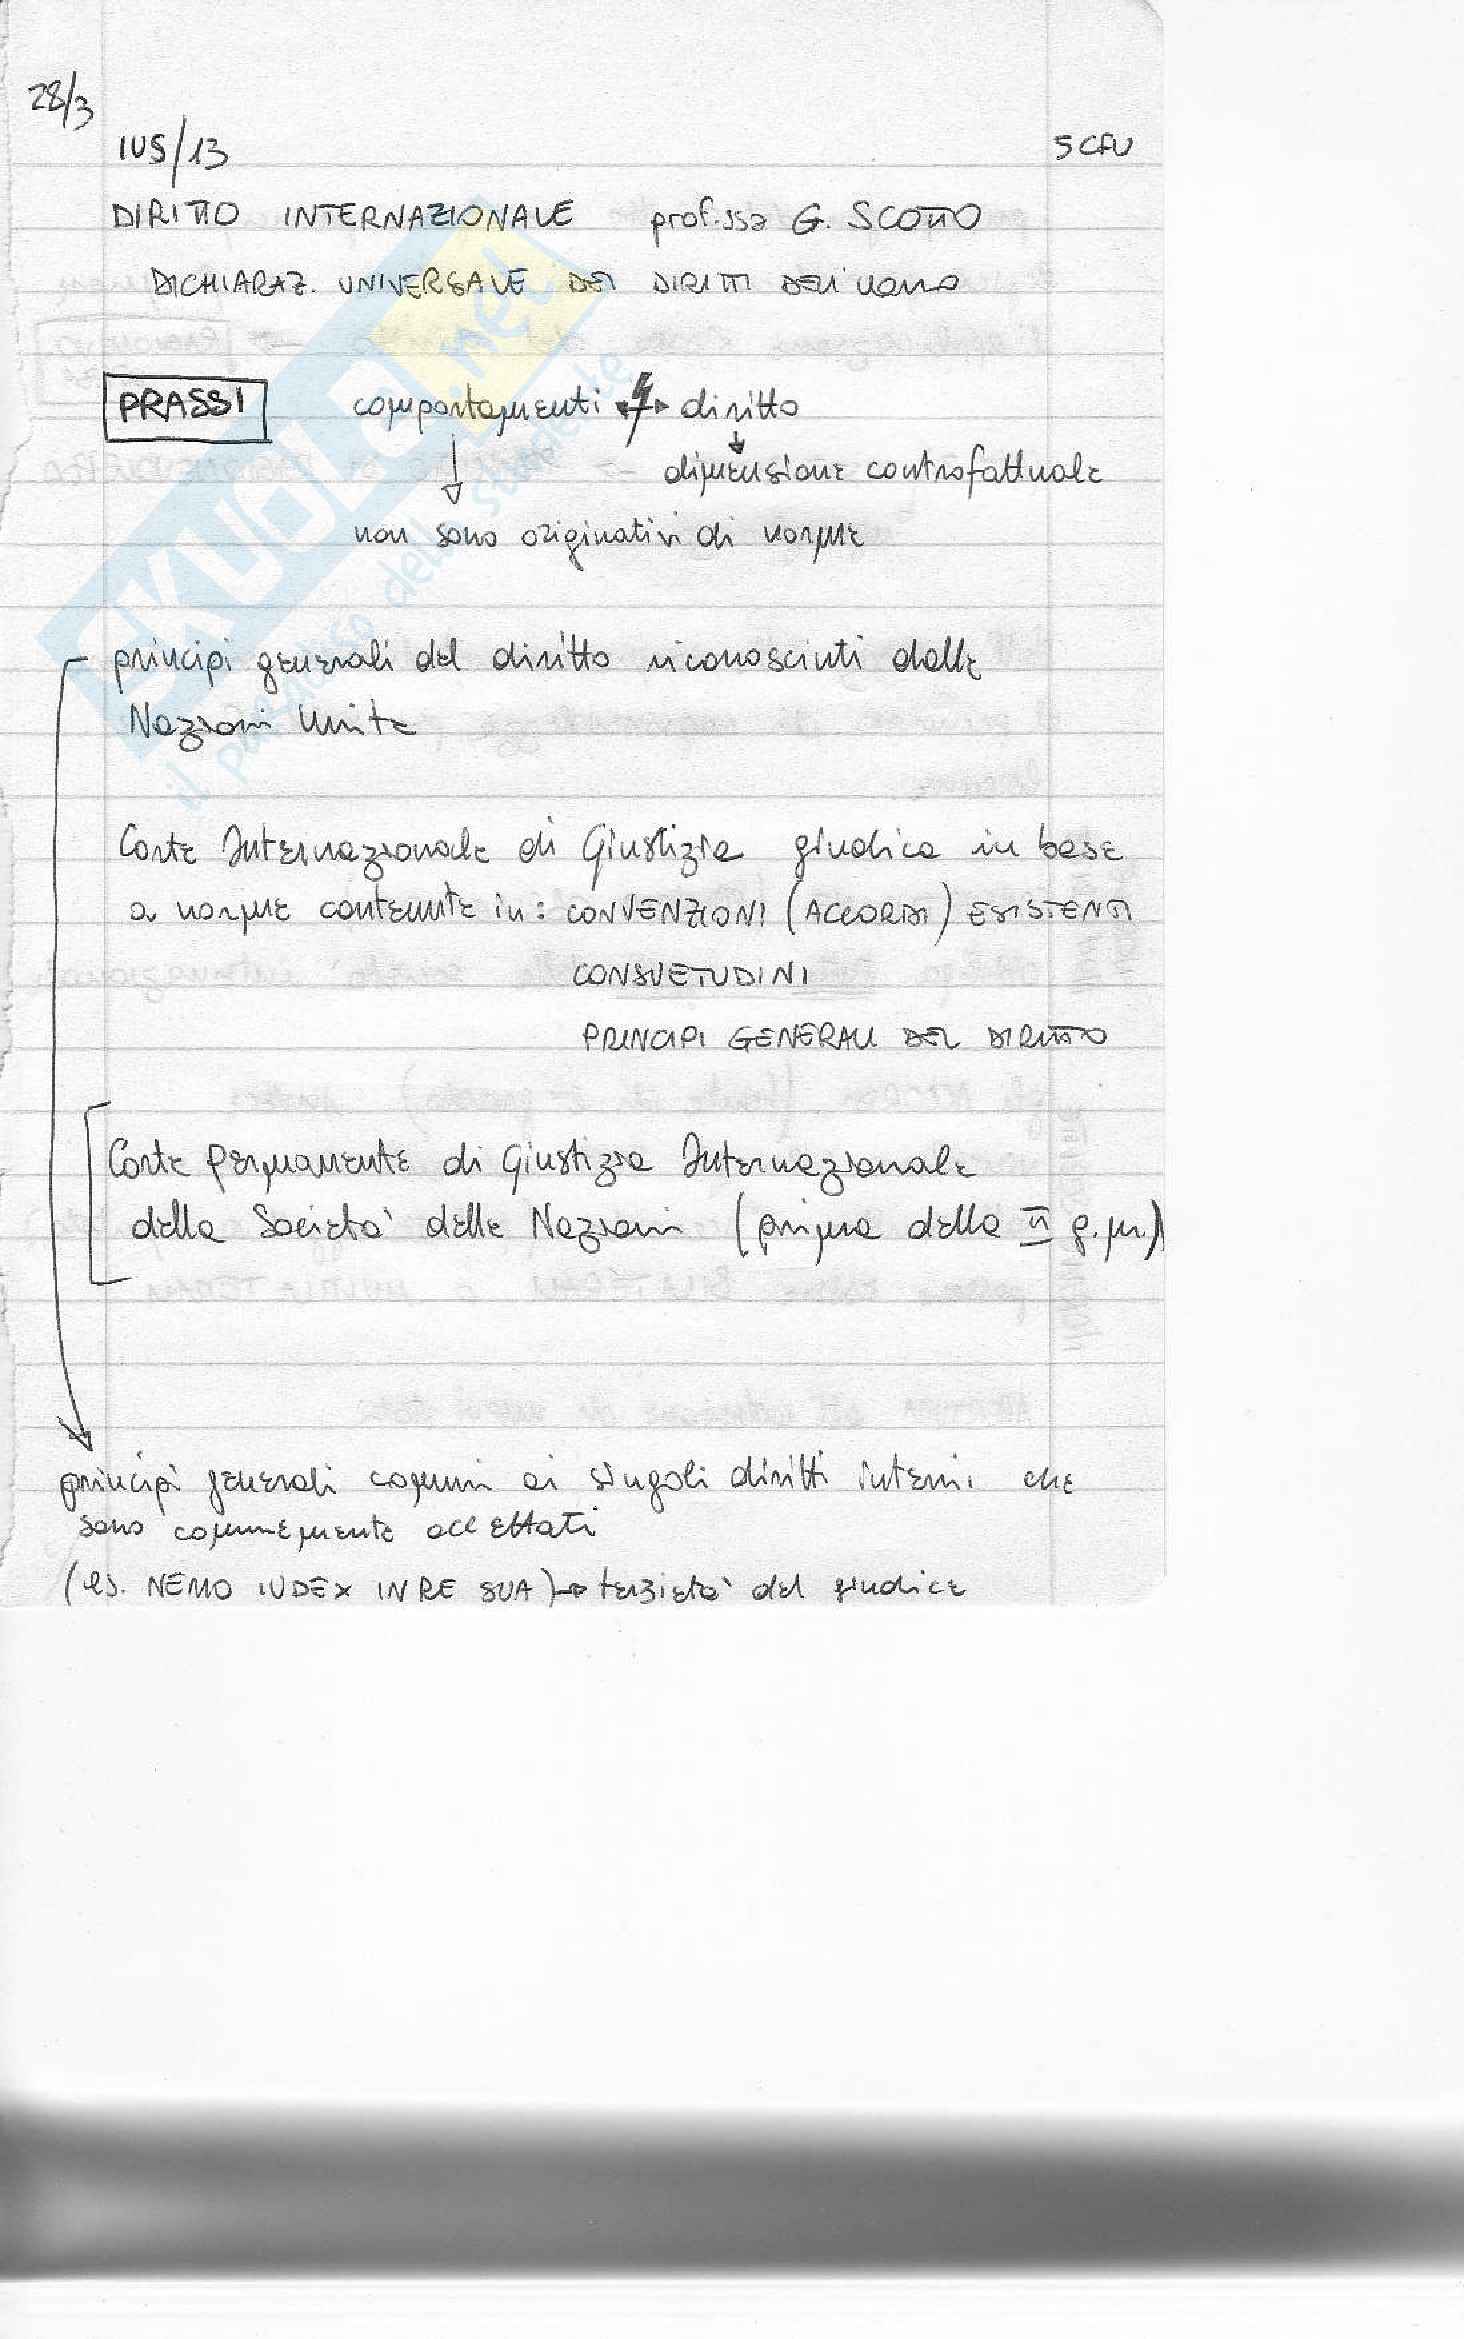 28/3
IUS/13 5 CFU
DIRITTO INTERNAZIONALE prof.ssa G. SCOTTO
DICHIARAZ. UNIVERSALE DEI DIRITTI DELL'UOMO
PRASSI comportamenti ↔ diritto
↓ ↓
dimensione controfattuale
non sono originativi di norme
principi generali del diritto riconosciuti dalle
Nazioni Unite
Corte Internazionale di Giustizia giudica in base
a norme contenute in: CONVENZIONI (ACCORDI) ESISTENTI
CONSUETUDINI
PRINCIPI GENERALI DEL DIRITTO
Corte Permanente di Giustizia Internazionale
della Società delle Nazioni (prima della II g.m.)
principi generali comuni ai singoli diritti interni che
sono comunemente accettati
(es. NEMO IUDEX IN RE SUA) → terzietà del giudice
SKUOLA.net
il paradiso dello studente